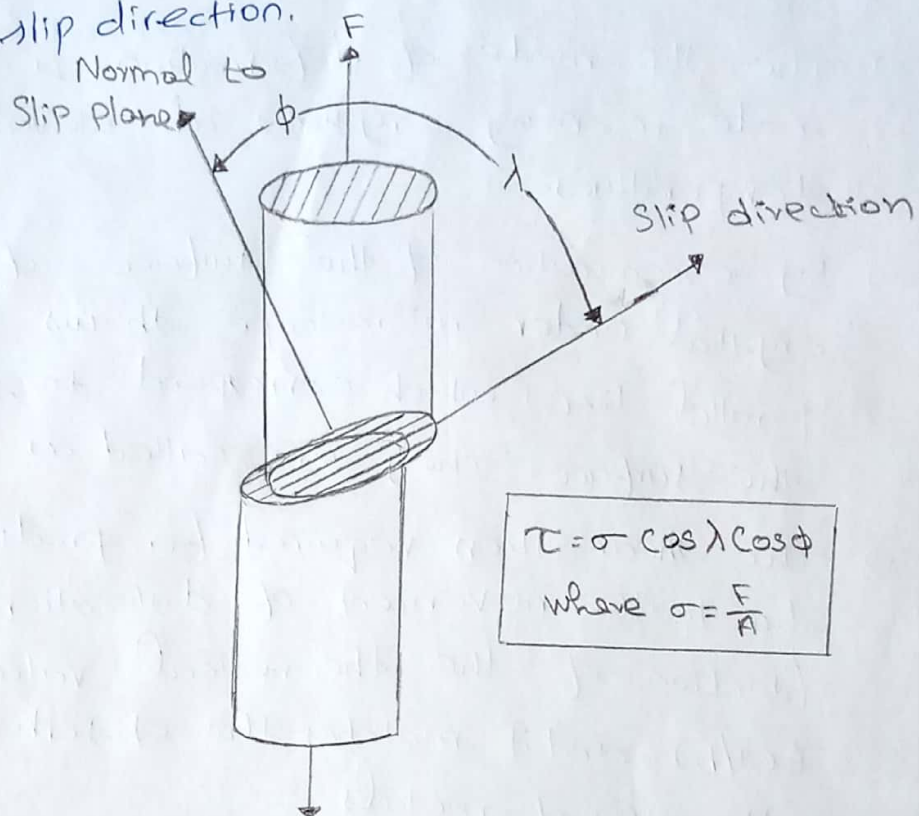 slip direction.
F
Normal to
Slip plane
ϕ
λ
Slip direction
τ = σ cos λ cos ϕ
where σ = F/A